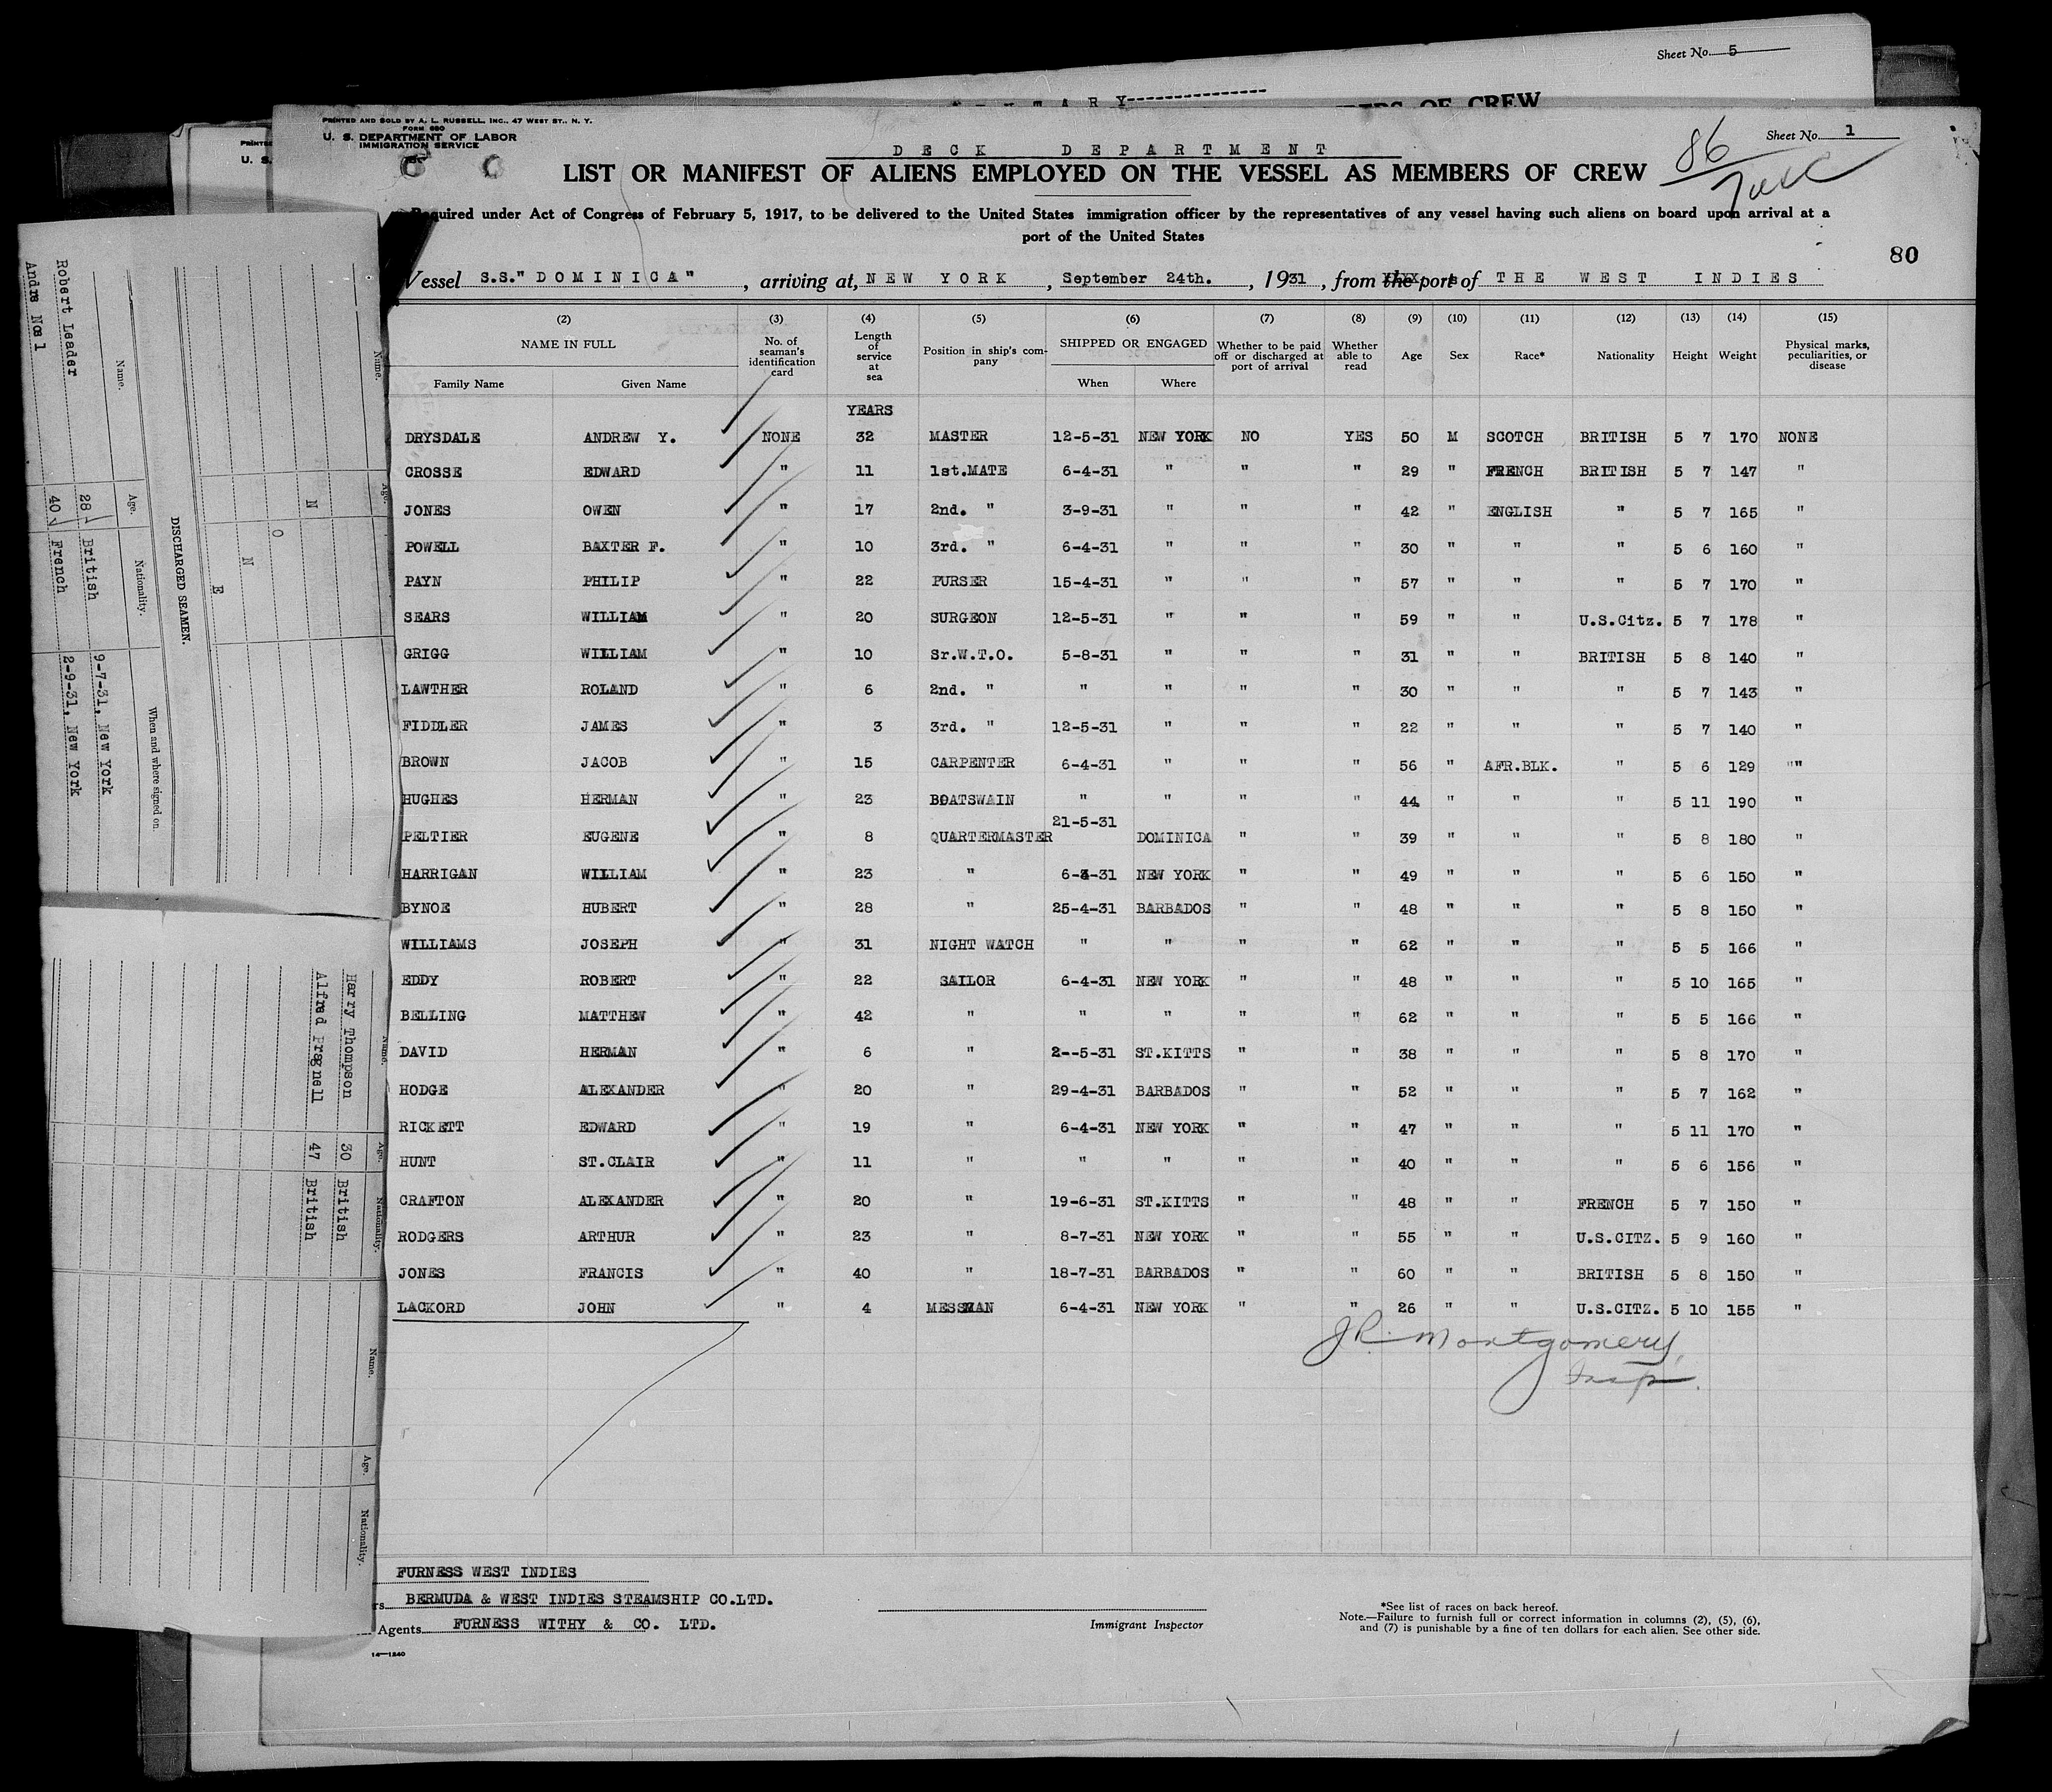 Sheet No. 5
MEMBERS OF CREW
PRINTED AND SOLD BY A. L. RUSSELL, INC., 47 WEST ST., N. Y.
FORM 680
U. S. DEPARTMENT OF LABOR
IMMIGRATION SERVICE
Sheet No. 1
86
DECK DEPARTMENT
LIST OR MANIFEST OF ALIENS EMPLOYED ON THE VESSEL AS MEMBERS OF CREW
Required under Act of Congress of February 5, 1917, to be delivered to the United States immigration officer by the representatives of any vessel having such aliens on board upon arrival at a
port of the United States
80
Vessel S.S."DOMINICA", arriving at, NEW YORK, September 24th., 1931, from the port of THE WEST INDIES
(2) (3) (4) (5) (6) (7) (8) (9) (10) (11) (12) (13) (14) (15)
NAME IN FULL No. of seaman's identification card Length of service at sea Position in ship's company SHIPPED OR ENGAGED Whether to be paid off or discharged at port of arrival Whether able to read Age Sex Race* Nationality Height Weight Physical marks, peculiarities, or disease
Family Name Given Name When Where
YEARS
DRYSDALE ANDREW Y. NONE 32 MASTER 12-5-31 NEW YORK NO YES 50 M SCOTCH BRITISH 5 7 170 NONE
CROSSE EDWARD " 11 1st.MATE 6-4-31 " " " 29 " FRENCH BRITISH 5 7 147 "
JONES OWEN " 17 2nd. " 3-9-31 " " " 42 " ENGLISH " 5 7 165 "
POWELL BAXTER F. " 10 3rd. " 6-4-31 " " " 30 " " " 5 6 160 "
PAYN PHILIP " 22 PURSER 15-4-31 " " " 57 " " " 5 7 170 "
SEARS WILLIAM " 20 SURGEON 12-5-31 " " " 59 " " U.S.Citz. 5 7 178 "
GRIGG WILLIAM " 10 Sr.W.T.O. 5-8-31 " " " 31 " " BRITISH 5 8 140 "
LAWTHER ROLAND " 6 2nd. " " " " " 30 " " " 5 7 143 "
FIDDLER JAMES " 3 3rd. " 12-5-31 " " " 22 " " " 5 7 140 "
BROWN JACOB " 15 CARPENTER 6-4-31 " " " 56 " AFR.BLK. " 5 6 129 ""
HUGHES HERMAN " 23 BOATSWAIN " " " " 44 " " " 5 11 190 "
PELTIER EUGENE " 8 QUARTERMASTER 21-5-31 DOMINICA " " 39 " " " 5 8 180 "
HARRIGAN WILLIAM " 23 " 6-4-31 NEW YORK " " 49 " " " 5 6 150 "
BYNOE HUBERT " 28 " 25-4-31 BARBADOS " " 48 " " " 5 8 150 "
WILLIAMS JOSEPH " 31 NIGHT WATCH " " " " 62 " " " 5 5 166 "
EDDY ROBERT " 22 SAILOR 6-4-31 NEW YORK " " 48 " " " 5 10 165 "
BELLING MATTHEW " 42 " " " " " 62 " " " 5 5 166 "
DAVID HERMAN " 6 " 2--5-31 ST.KITTS " " 38 " " " 5 8 170 "
HODGE ALEXANDER " 20 " 29-4-31 BARBADOS " " 52 " " " 5 7 162 "
RICKETT EDWARD " 19 " 6-4-31 NEW YORK " " 47 " " " 5 11 170 "
HUNT ST.CLAIR " 11 " " " " " 40 " " " 5 6 156 "
CRAFTON ALEXANDER " 20 " 19-6-31 ST.KITTS " " 48 " " FRENCH 5 7 150 "
RODGERS ARTHUR " 23 " 8-7-31 NEW YORK " " 55 " " U.S.CITZ. 5 9 160 "
JONES FRANCIS " 40 " 18-7-31 BARBADOS " " 60 " " BRITISH 5 8 150 "
LACKORD JOHN " 4 MESSMAN 6-4-31 NEW YORK " " 26 " " U.S.CITZ. 5 10 155 "
J.R. Montgomery,
Insp.
FURNESS WEST INDIES
BERMUDA & WEST INDIES STEAMSHIP CO.LTD.
Agents FURNESS WITHY & CO. LTD.
14—1240
Immigrant Inspector
*See list of races on back hereof.
Note.—Failure to furnish full or correct information in columns (2), (5), (6),
and (7) is punishable by a fine of ten dollars for each alien. See other side.
Name. Age.
N
O
N
E
DISCHARGED SEAMEN.
Name. Age. Nationality. When and where signed on.
Robert Leader 28 British 9-7-31, New York
40 French 2-9-31, New York
Name. Age. Nationality. Name. Age. Nationality.
Harry Thompson 30 British
Alfred Pragnell 47 British